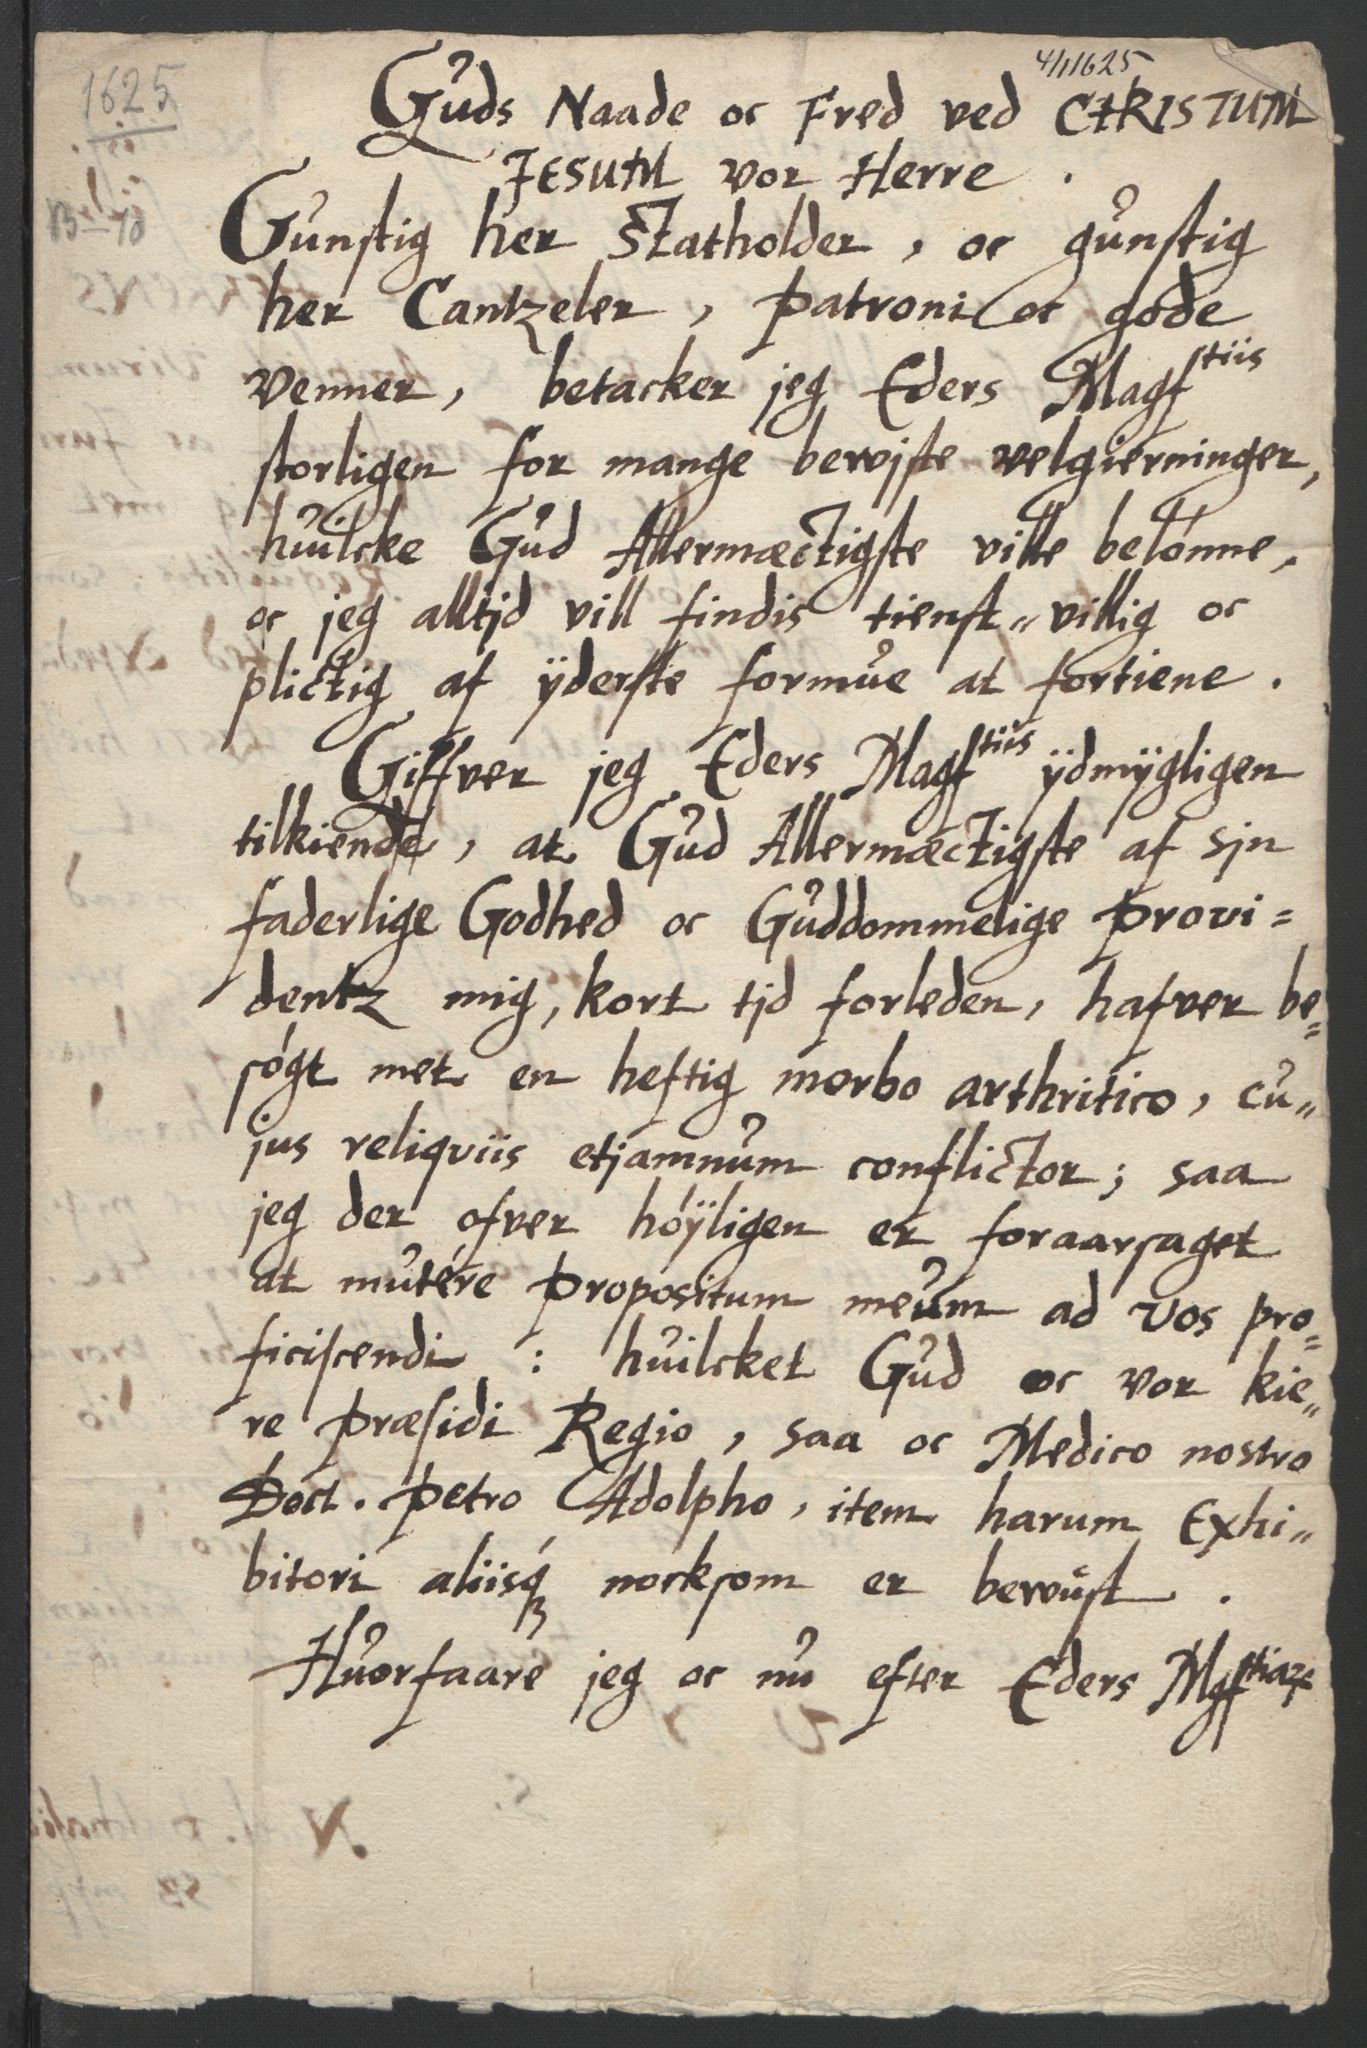 1625
4/1 1625
Guds Naade oc Fred ved CHRISTUM
JESUM vor Herre.
Gunstig her Statholder, oc gunstig
her Cantzeler, patroni oc gode
venner, betacker jeg Eders Magf^tiis
storligen for mange bewjste velgierninger,
huilcke Gud Allermæctigste ville belónne,
oc jeg alltjd vill findis tienst„villig oc
plictig af ÿderste formue at fortiene.
Giffver jeg Eders Magf^tiis ÿdmÿgligen
tilkiende, at Gud Allermæctigste af sjn
faderlige Godhed oc Guddommelige provi=
dentz mig, kort tjd forleden, hafver be=
sógt met en heftig morbo arthritico, cu„
jus reliqviis etjamnum conflictor; saa
jeg der ofver hóÿligen er foraarsaget
at mutére propositum meum ad vos pro=
ficiscendi : huilcket Gud oc vor kie„
re præsidi Regio, saa oc Medico nostro
Doct. Petro Adolpho, item harum Exhi„
bitori aliisq́ꝫ nocksom er bewust.
Huorfaare jeg oc nu efter Eders Mgf^tiaꝝ